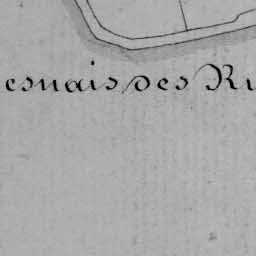 esnais des Ri